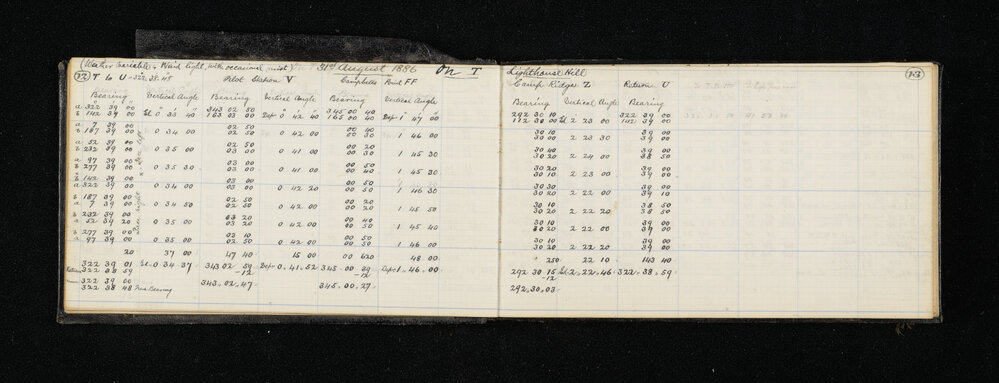 (Weather Variable - Wind light, with occasional mist) 31st August 1886 On T Lighthouse Hill
72 T to U - 322.38.48 Pilot Station V Campbells Point FF Camp Ridge Z Return U 73
Bearing Vertical Angle Bearing Vertical Angle Bearing Vertical Angle Bearing Vertical Angle Bearing
a 322 39 00 El 0 33 40 343 02 50 Dep 0 42 40 345 00 40 Dep 1 47 00 292 30 10 El 2 23 00 322 39 00
b 142 39 00 163 03 00 165 00 40 112 30 00 142 39 00
a 7 39 00 0 34 00 02 50 0 42 00 00 40 1 46 00 30 10 2 23 30 39 00
b 187 39 00 02 50 00 30 30 20 39 00
a 52 39 00 0 35 00 02 50 0 41 00 00 20 1 45 30 30 40 2 24 00 39 00
b 232 39 00 03 00 00 30 30 20 38 50
a 97 39 00 0 35 30 03 00 0 41 00 00 50 1 45 30 30 10 2 23 00 39 00
b 277 39 00 03 00 00 40 30 20 39 00
b 142 39 00 0 34 00 03 00 0 42 20 00 50 1 46 30 30 30 2 22 00 39 00
a 322 39 00 03 00 00 50 30 20 39 10
b 187 39 00 0 34 50 02 50 0 42 00 00 20 1 45 50 30 10 2 22 20 38 50
a 7 39 00 03 00 00 50 30 20 38 50
b 232 39 00 0 35 00 03 20 0 42 00 00 40 1 45 40 30 10 2 22 00 39 00
a 52 39 20 03 20 00 50 30 20 39 00
b 277 39 00 0 35 00 03 10 0 42 00 00 50 1 46 00 30 10 2 22 20 39 00
a 97 39 00 02 50 00 50 30 20 39 00
20 37 00 47 40 15 00 00 620 48 00 250 22 10 143 40
322 39 01 El 0 34 37 343 02 59 Dep 0.41.52 345.00.39 Dep 1.46.00 292 30 15 El 2.22.46 322.38.59
Return 322 38 59 -12 -12 -12
322 39 00 343.02.47 345.00.27 292.30.03
322 38 48 True Bearing